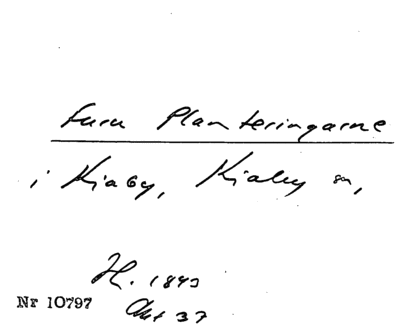 Furu Planteringarne
i Kiaby, Kiaby sn,
H. 1843
Nr 10797
Akt 37